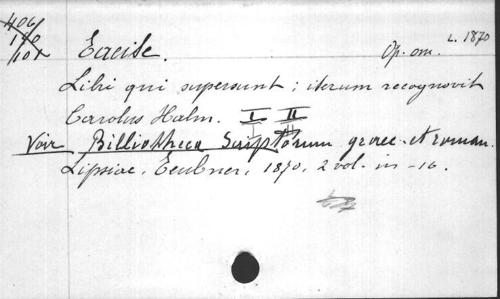 406/
140/
102
Tacite.
Op. om.
L. 1870
Libri qui supersunt; iterum recognovit
Carolus Halm. I II
Voir Bibliotheca Scriptorum graec. et roman.
Lipsiae, Teubner, 1870, 2 vol. in-16.